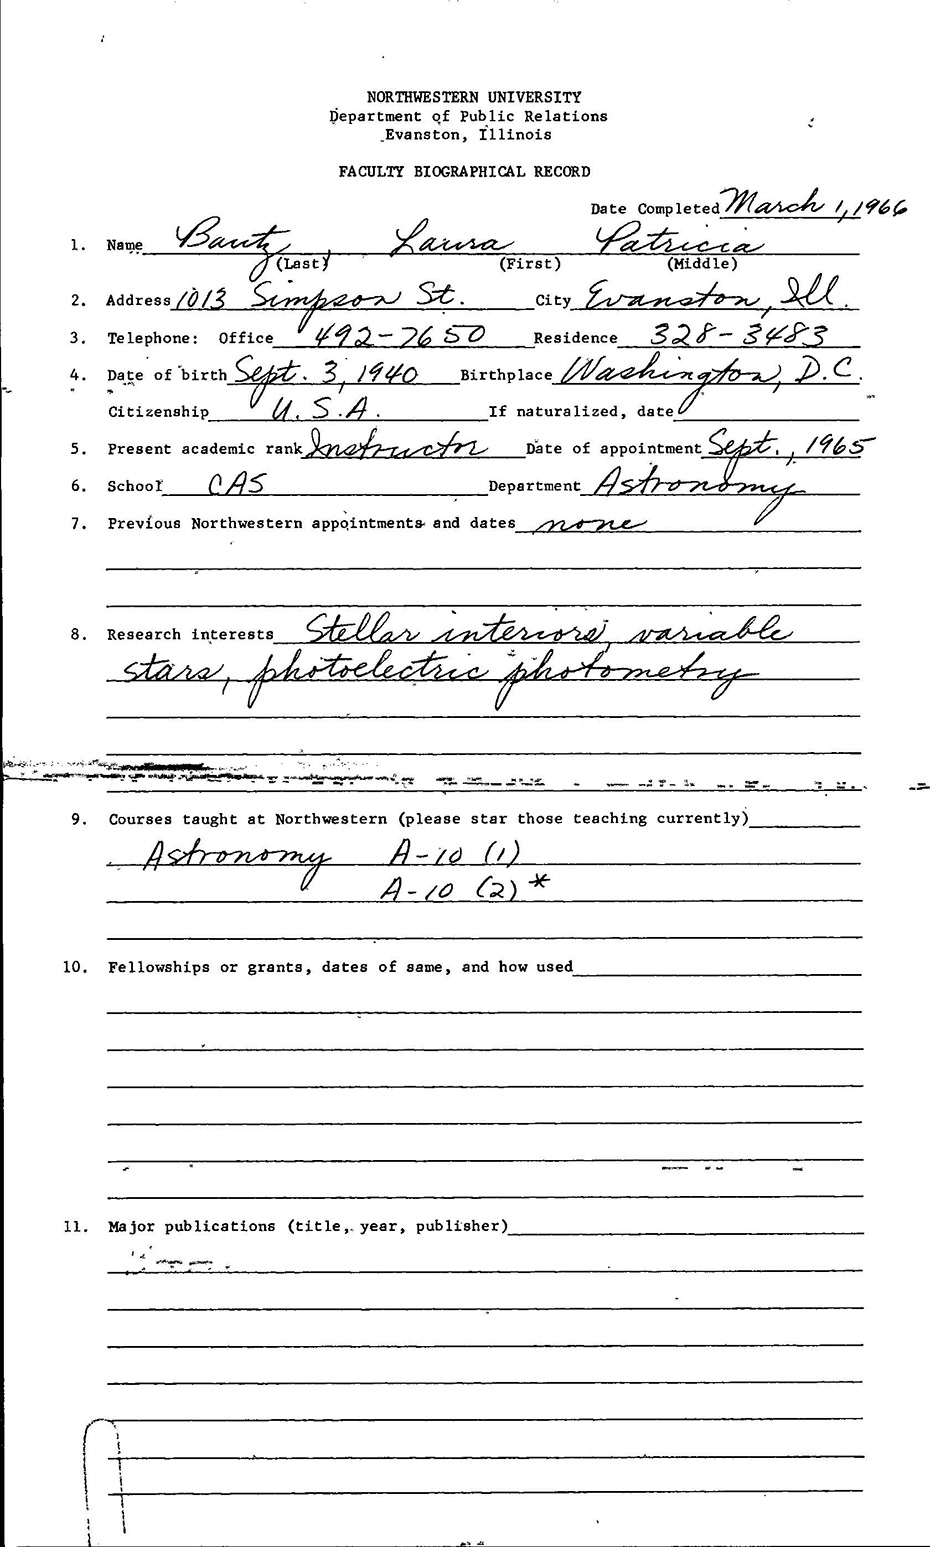 NORTHWESTERN UNIVERSITY
Department of Public Relations
Evanston, Illinois
FACULTY BIOGRAPHICAL RECORD
Date Completed March 1, 1966
1. Name Bautz, Laura Patricia
(Last) (First) (Middle)
2. Address 1013 Simpson St. City Evanston, Ill.
3. Telephone: Office 492-7650 Residence 328-3483
4. Date of birth Sept. 3, 1940 Birthplace Washington, D.C.
Citizenship U.S.A. If naturalized, date
5. Present academic rank Instructor Date of appointment Sept., 1965
6. School CAS Department Astronomy
7. Previous Northwestern appointments and dates none
8. Research interests Stellar interiors, variable
stars, photoelectric photometry
9. Courses taught at Northwestern (please star those teaching currently)
Astronomy A-10 (1)
A-10 (2)*
10. Fellowships or grants, dates of same, and how used
11. Major publications (title, year, publisher)